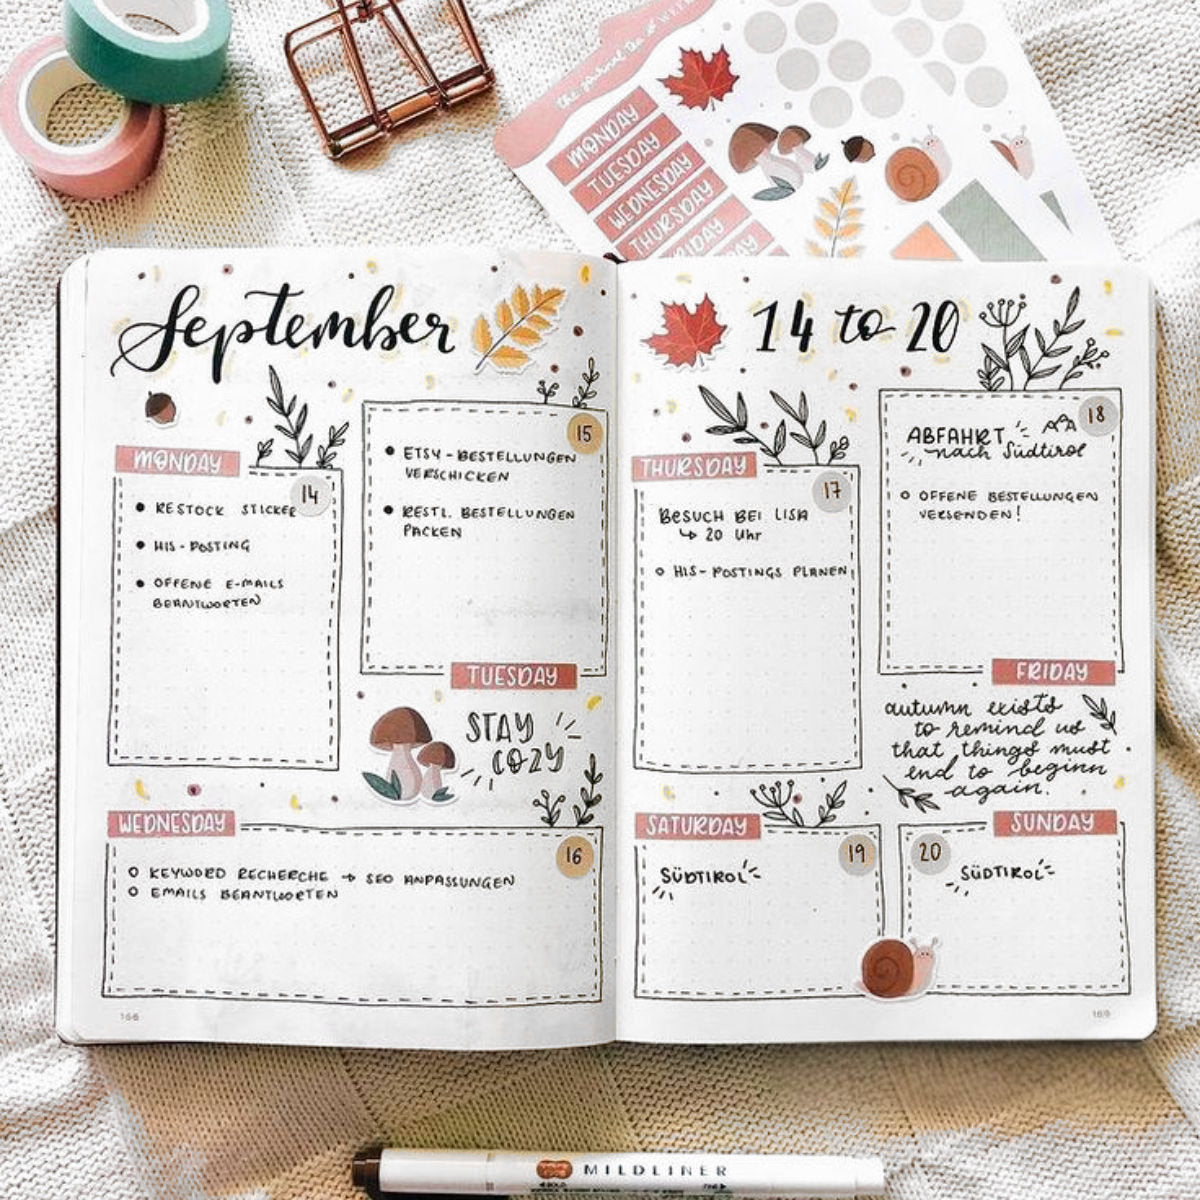 the journal tea
MONDAY
TUESDAY
WEDNESDAY
THURSDAY
September
14 to 20
MONDAY
14
● RESTOCK STICKER
● HIS-POSTING
● OFFENE E-MAILS
BEANTWORTEN
15
● ETSY-BESTELLUNGEN
VERSCHICKEN
● RESTL. BESTELLUNGEN
PACKEN
TUESDAY
STAY
COZY
WEDNESDAY
16
○ KEYWORD RECHERCHE → SEO ANPASSUNGEN
○ EMAILS BEANTWORTEN
THURSDAY
17
BESUCH BEI LISA
↳ 20 Uhr
○ HIS-POSTINGS PLANEN
18
ABFAHRT
nach Südtirol
○ OFFENE BESTELLUNGEN
VERSENDEN!
FRIDAY
autumn exists
to remind us
that things must
end to beginn
again.
SATURDAY
19
SÜDTIROL
SUNDAY
20
SÜDTIROL
168
169
MILDLINER